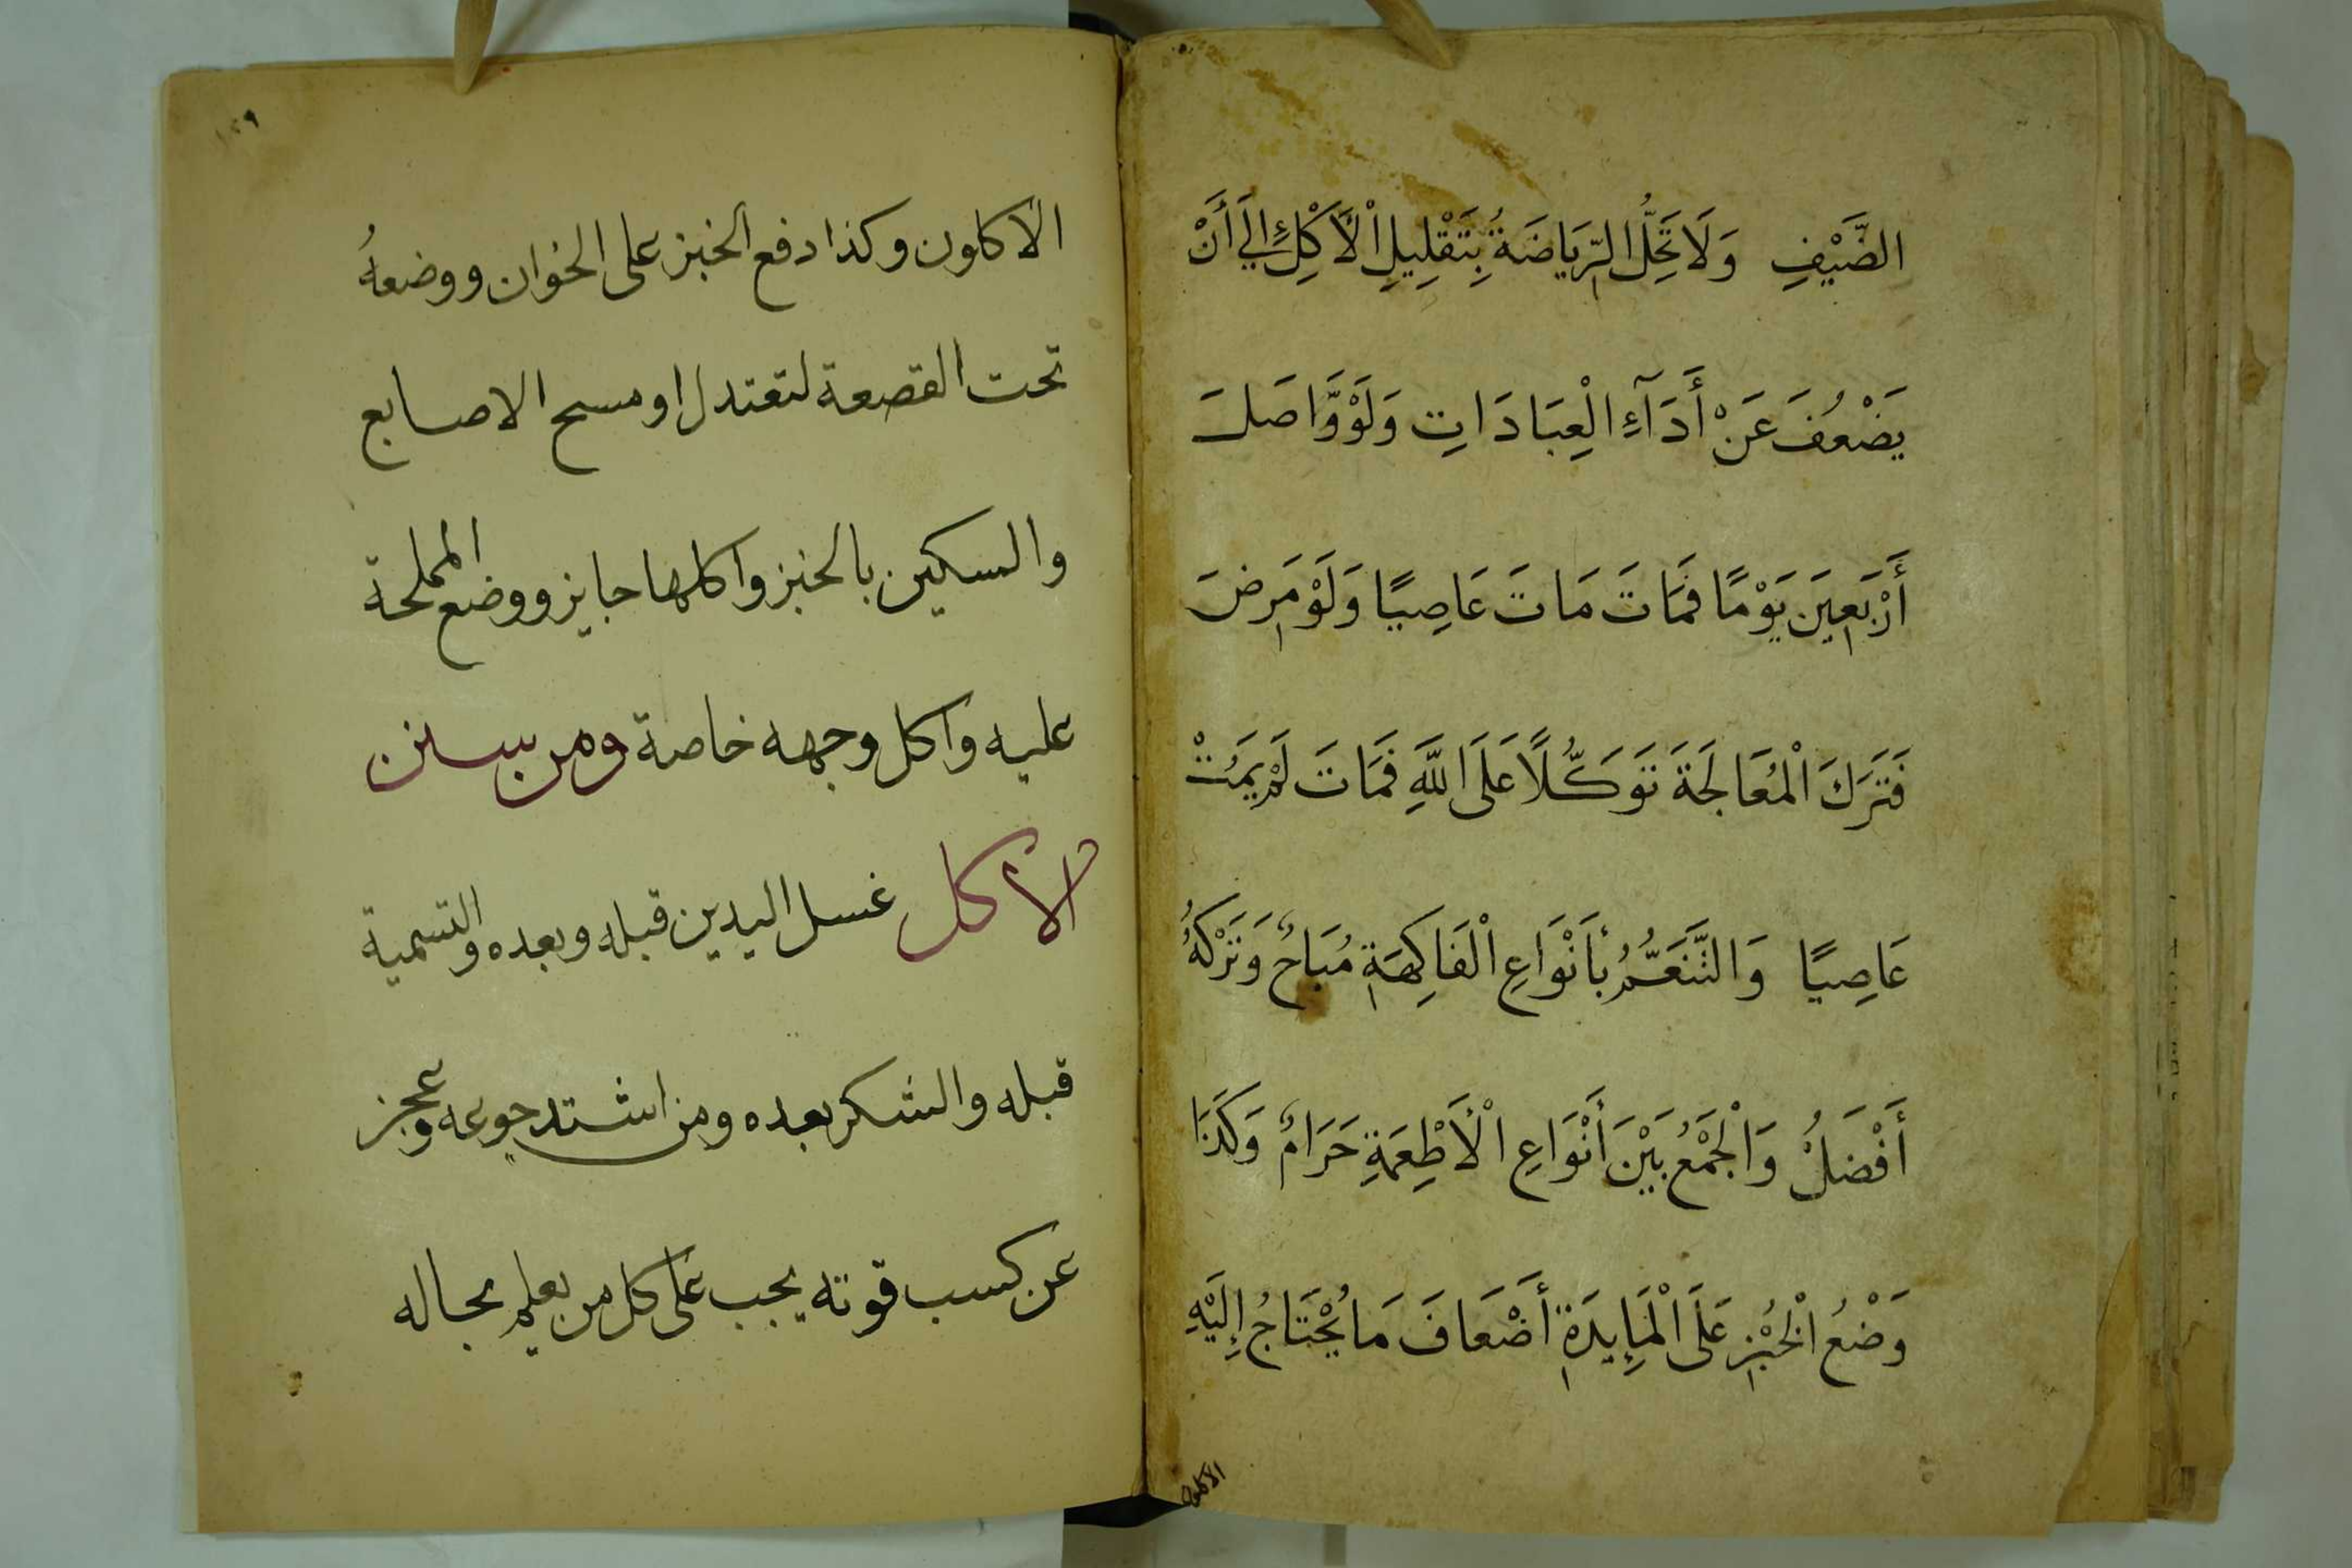 الضَّيْفِ وَلَا تَحِلُّ الرِّيَاضَةُ بِتَقْلِيلِ الْأَكْلِ إِلَي أَنْ
يَضْعُفَ عَنْ أَدَآءِ الْعِبَادَاتِ وَلَوْ وَّاصَلَ
أَرْبَعِينَ يَوْمًا فَمَاتَ مَاتَ عَاصِيًا وَلَوْ مَرِضَ
فَتَرَكَ الْمُعَالَجَةَ تَوَكُّلًا عَلَى اللَّهِ فَمَاتَ لَمْ يَمُتْ
عَاصِيًا وَالتَّنَعُّمُ بِأَنْوَاعِ الْفَاكِهَةِ مُبَاحٌ وَتَرْكُهُ
أَفْضَلُ وَالْجَمْعُ بَيْنَ أَنْوَاعِ الْأَطْعِمَةِ حَرَامٌ وَكَذَا
وَضْعُ الْخُبْزِ عَلَى الْمَايِدَةِ أَضْعَافَ مَا يُحْتَاجُ إِلَيْهِ
الاكلون
١٢٩
الاكلون وكذا دفع الخبز على الخوان ووضعهُ
تحت القصعة لتعتدل او مسح الاصابع
والسكين بالخبز واكلها جايز ووضع المملحة
عليه واكل وجهه خاصة ومن سنن
الاكل غسل اليدين قبله وبعده والتسمية
قبله والشكر بعده ومن اشتد جوعه وعجز
عن كسب قوته يجب على كل من يعلم بحاله